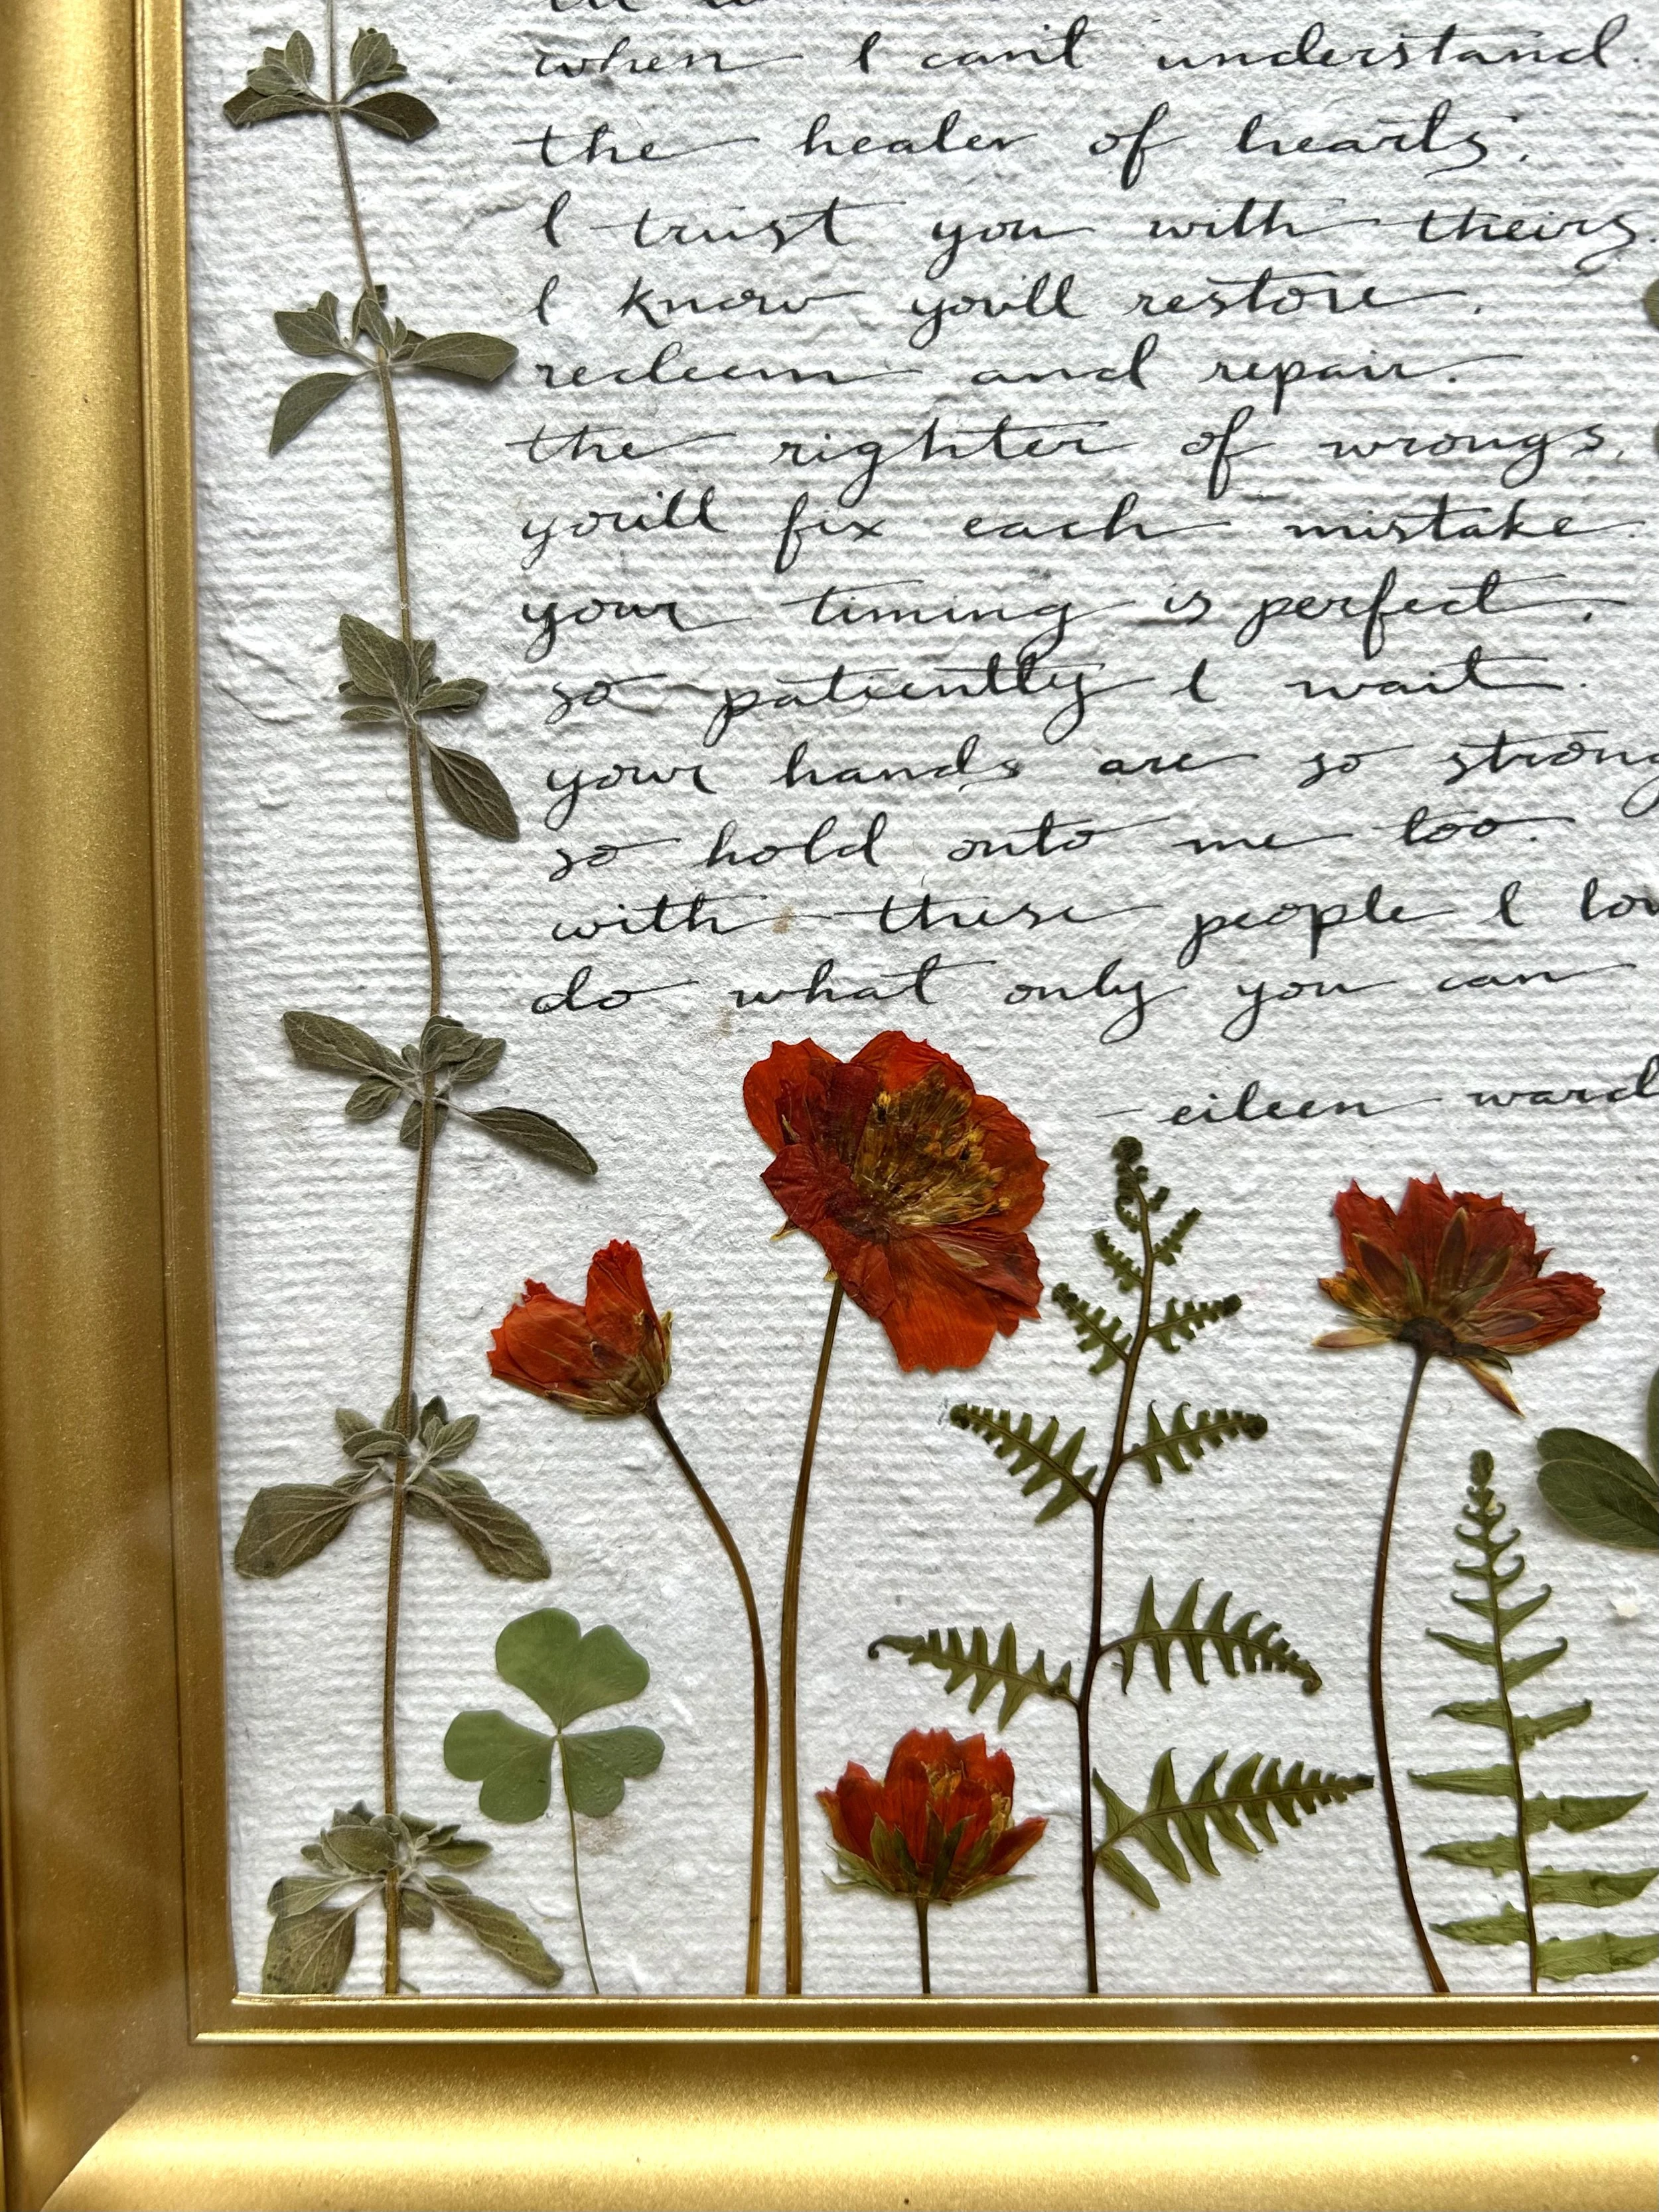 when I can't understand.
the healer of hearts,
I trust you with theirs.
I know you'll restore,
redeem and repair.
the righter of wrongs,
you'll fix each mistake.
your timing is perfect,
so patiently I wait.
your hands are so strong
so hold onto me too.
with these people I lov
do what only you can
- eileen ward